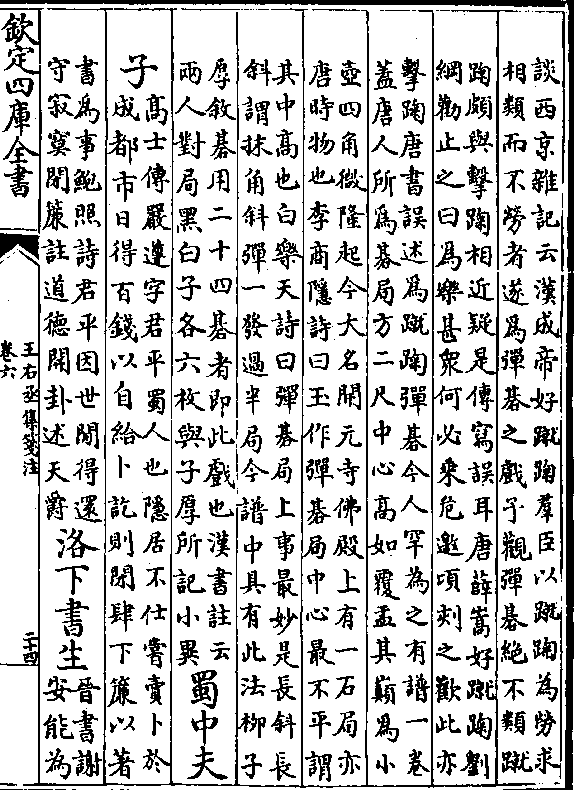 談西京雜記云漢成帝好蹴踘羣臣以蹴踘為勞求
相類而不勞者遂為彈棊之戲予觀彈棊絕不類蹴
踘頗與擊踘相近疑是傳寫誤耳唐薛嵩好蹴踘劉
綱勸止之曰為樂甚衆何必乘危邀頃刻之歡此亦
擊踘唐書誤述為蹴踘彈棊今人罕為之有譜一卷
蓋唐人所為棊局方二尺中心高如覆盂其巔為小
壺四角微隆起今大名開元寺佛殿上有一石局亦
唐時物也李商隱詩曰玉作彈棊局中心最不平謂
其中高也白樂天詩曰彈棊局上事最妙是長斜長
斜謂抹角斜彈一發過半局今譜中具有此法柳子
厚敘棊用二十四棊者即此戲也漢書註云
兩人對局黑白子各六枚與子厚所記小異
蜀中夫
子
高士傳嚴遵字君平蜀人也隱居不仕嘗賣卜於
成都市日得百錢以自給卜訖則閉肆下簾以著
書為事鮑照詩君平因世閒得還
守寂寞閉簾註道德開卦述天爵
洛下書生
晉書謝
安能為
欽定四庫全書
王右丞集箋注
卷六
二十四